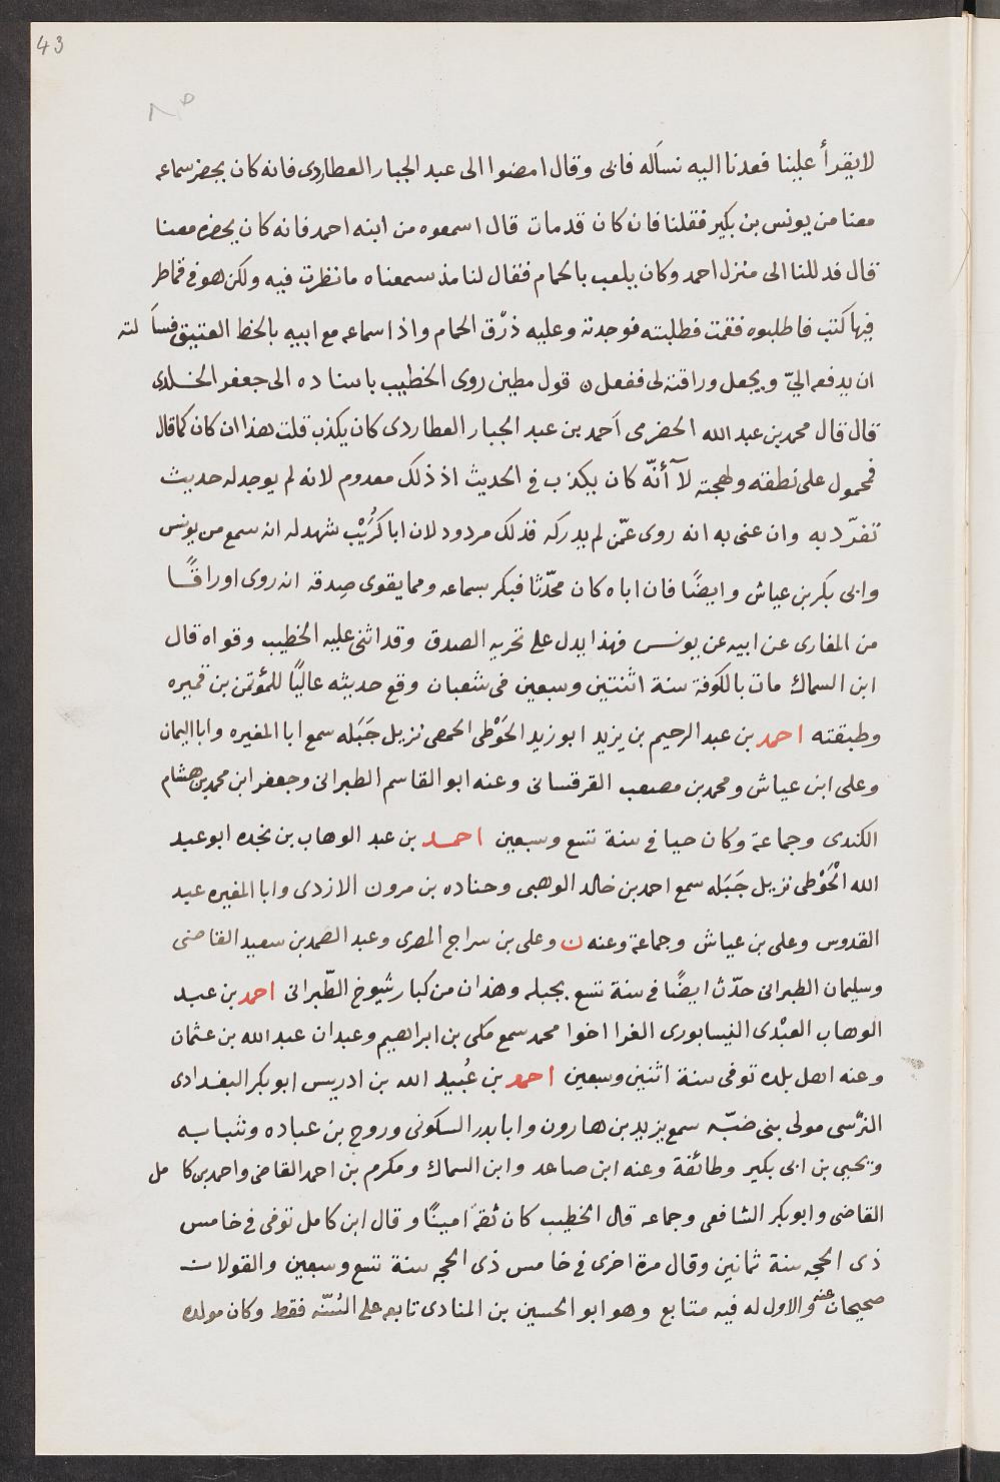 43
لا يقرأ علينا فعدنا اليه نسأله فابى وقال امضوا الى عبد الجبار العطاردى فانه كان يحضر سماعه
معنا من يونس بن بكير فقلنا فان كان قد مات قال اسمعوه من ابنه احمد فانه كان يحضره معنا
قال فدللنا الى منزل احمد وكان يلعب بالحمام فقال لنا مذ سمعناه ما نظرت فيه ولكن هو فى قماطر
فيها كتب فاطلبوه فقمت فطلبته فوجدته وعليه ذرْق الحمام واذا سماعه مع ابيه بالخط العتيق فسألته
ان يدفعه اليّ ويجعل وراقته لى ففعل ن قول مطين روى الخطيب باسناده الى جعفر الخلدى
قال قال محمد بن عبد الله الحضرمى اَحمد بن عبد الجبار العطاردى كان يكذب قلت هذا ان كان كما قال
فمحمول على نطقه ولهجته لآ أنّه كان يكذب فى الحديث اذ ذلك معدوم لانه لم يوجد له حديث
تفرّد به وان عنى به انه روى عمّن لم يدركه فذلك مردود لان ابا كُرَيْب شهد له انه سمع من يونس
وابى بكر بن عياش وايضًا فان اباه كان محدّثا فبكر بسماعه ومما يقوى صِدقه انه روى اوراقًا
من المغازى عن ابيه عن يونس فهذا يدل على تحريه الصدق وقد اثنى عليه الخطيب وقواه قال
ابن السماك مات بالكوفة سنة اثنتين وسبعين فى شعبان وقع حديثه عاليًا للمؤتمن بن قميره
وطبقته احمد بن عبد الرحيم بن يزيد ابو زيد الحَوْطى الحمصى نزيل جَبَله سمع ابا المغيره وابا اليمان
وعلى ابن عياش ومحمد بن مصعب القرقسانى وعنه ابو القاسم الطبرانى وجعفر ابن محمد بن هشام
الكندى وجماعة وكان حيا فى سنة تسع وسبعين احمد بن عبد الوهاب بن نجده ابو عبد
الله الْحَوْطى نزيل جَبَله سمع احمد بن خالد الوهبى وجناده بن مرون الازدى وابا المغيره عبد
القدوس وعلى بن عياش وجماعة وعنه ن وعلى بن سراج المصرى وعبد الصمد بن سعيد القاضى
وسليمان الطبرانى حدّث ايضًا فى سنة تسع بجبله وهذان من كبار شيوخ الطّبرانى احمد بن عبد
الوهاب العبْدى النيسابورى الفرا اخوا محمد سمع مكى بن ابراهيم وعبدان عبد الله بن عثمان
وعنه اهل بلده توفى سنة اثنين وسبعين احمد بن عُبيد الله بن ادريس ابو بكر البغدادى
النرْسى مولى بنى ضبّه سمع يزيد بن هارون وابا بدر السكونى وروح بن عباده وشبابه
ويحيى بن ابى بكير وطائفة وعنه ابن صاعد وابن السماك ومكرم بن احمد القاضى واحمد بن كامل
القاضى وابو بكر الشافعى وجماعه قال الخطيب كان ثقةً امينًا وقال ابن كامل توفى فى خامس
ذى الحجه سنة ثمانين وقال مرة اخرى فى خامس ذى الحجه سنة تسع وسبعين والقولان
صحيحان عنه والاول له فيه متابع وهو ابو الحسين بن المنادى تابعه على السُنّه فقط وكان مولده